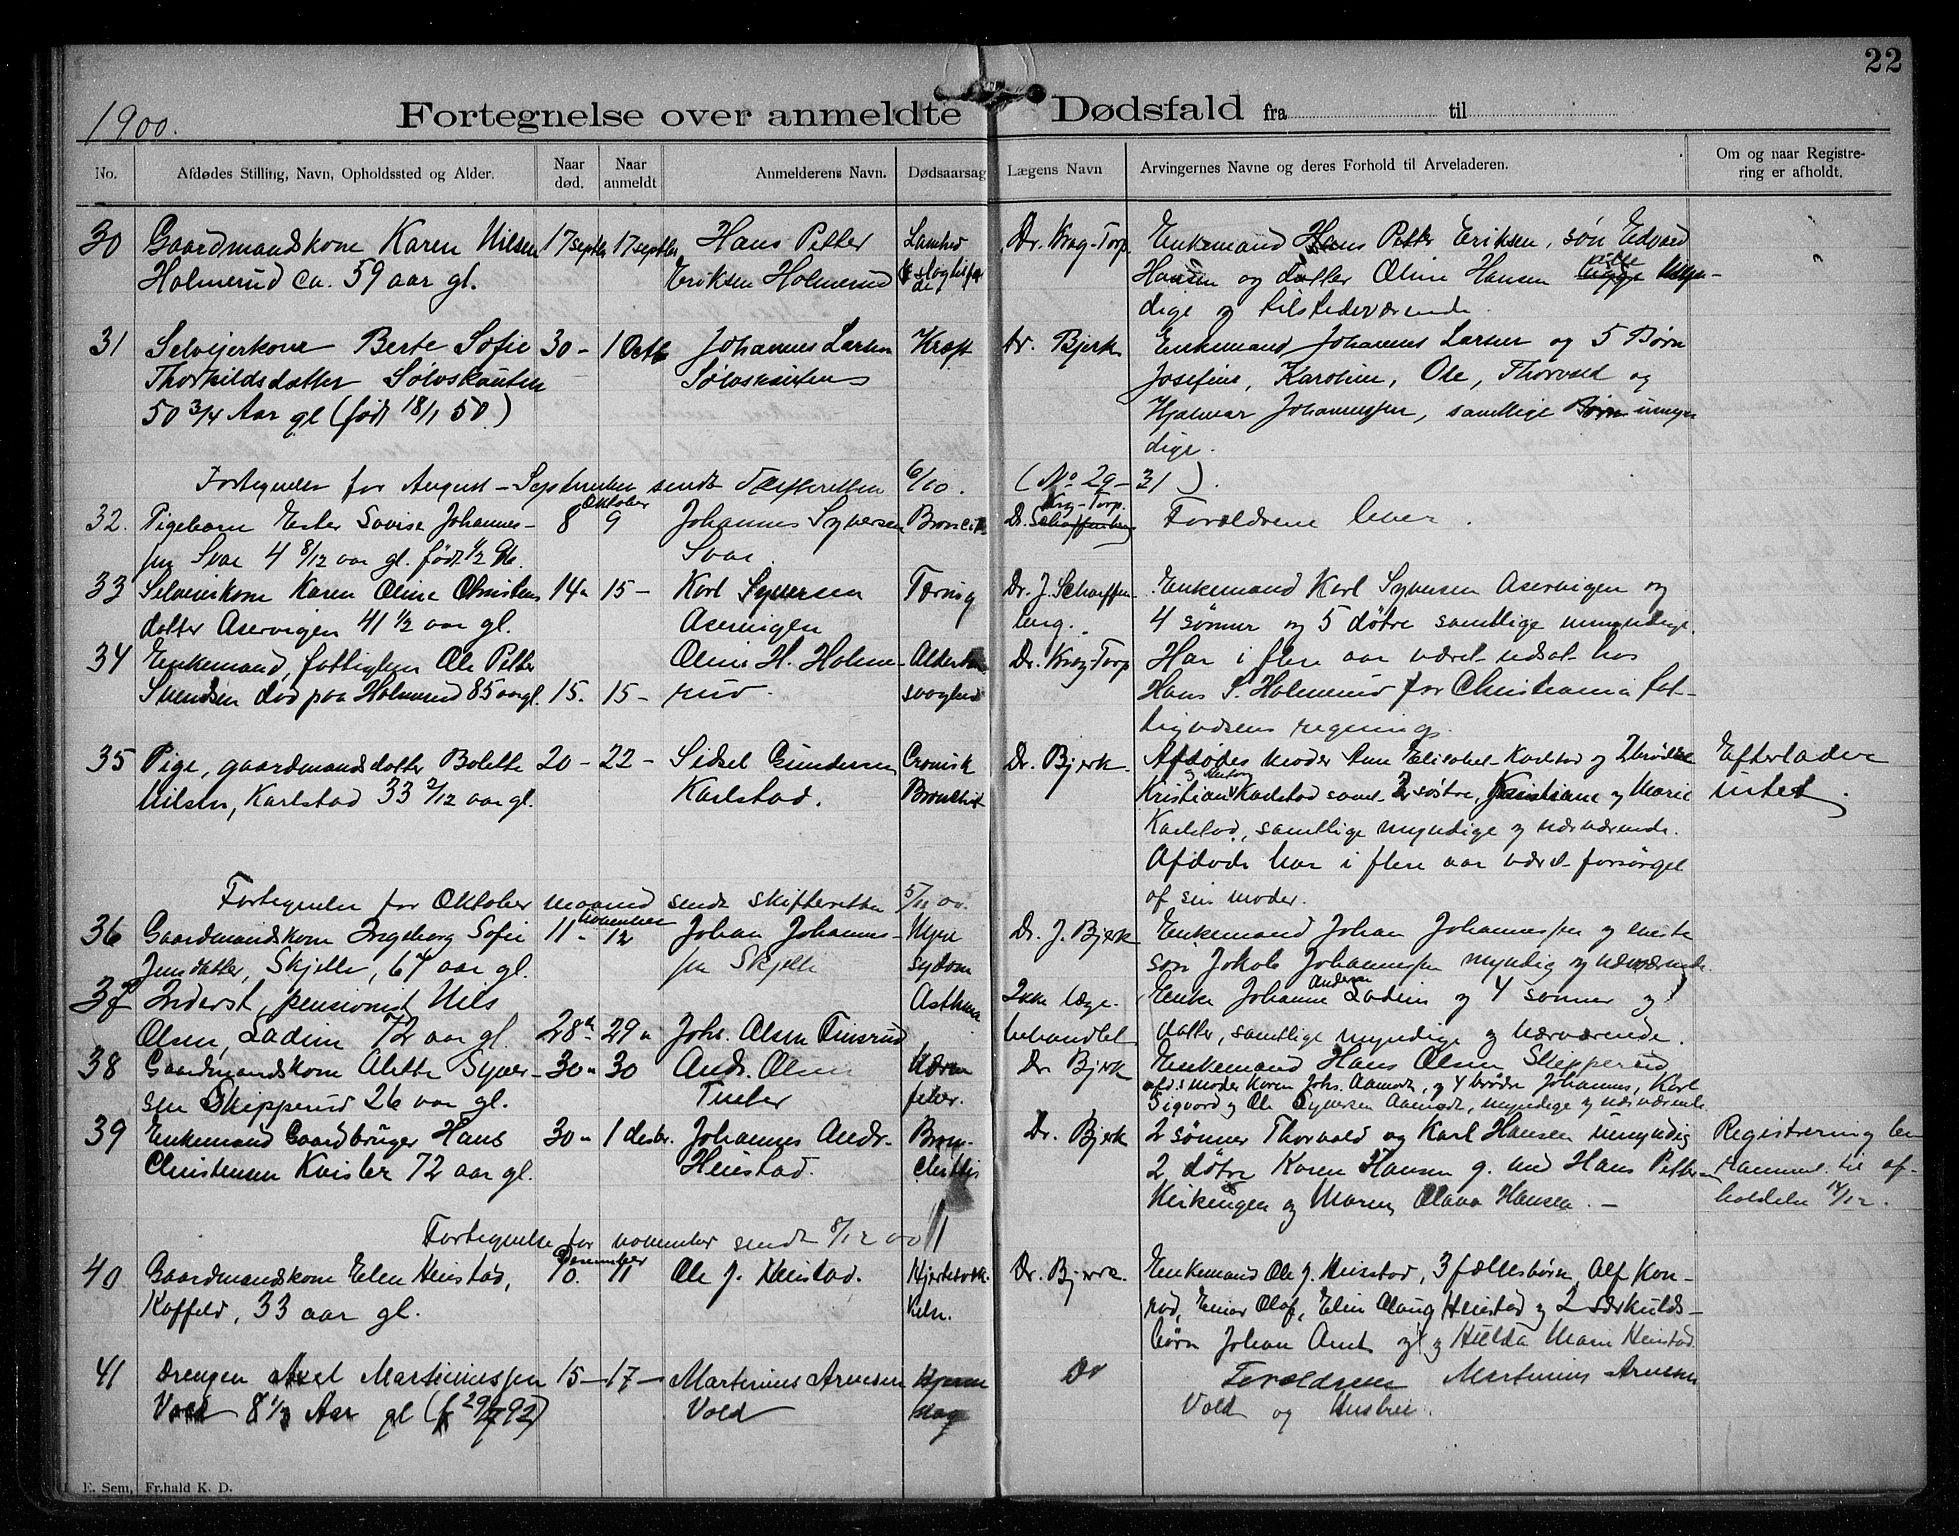 22
1900.
Fortegnelse over anmeldte Dødsfald fra til
No.
Afdødes Stilling, Navn, Opholdssted og Alder.
Naar død.
Naar anmeldt
Anmelderens Navn.
Dødsaarsag
Lægens Navn
Arvingernes Navne og deres Forhold til Arveladeren.
Om og naar Registrering er afholdt.
30 Gaardmandskone Karen Nilsen 17 septbr 17 septbr Hans Petter Lamhed Dr. Krag-Torp Enkemand Hans Petter Eriksen, søn Edvard
Holmerud ca. 59 aar gl. Eriksen Holmerud Hansen og datter Oline Hansen alle umyn-
dige og tilstedeværende.
31 Selveierkone Berte Sofie 30 - 1 Octb Johannes Larsen Kræft Dr. Bjerk Enkemand Johannes Larsen og 5 Børn
Thorkildsdatter Solvskauten Solvskauten Josefine, Karoline, Ole, Thorvald og
50 3/4 Aar gl (født 18/1 50) Hjalmar Johannessen, samtlige umyn-
dige.
Fortegnelse for August - September sendt Skifteretten 6/10. (No 29 - 31).
32. Pigebarn Ester Lovise Johannes- 8 Oktober 9 Johannes Syversen Dr. Krag-Torp. Forældrene lever.
sen Svae 4 8/12 aar gl. født 1/2 96. Svae
33 Selveierkone Karen Oline Christens 14 " 15 - Karl Syversen Tæring Dr. J. Scharffen- Enkemand Karl Syversen Aservigen og
datter Aservigen 41 1/2 aar gl. Aservigen berg. 4 sønner og 5 døtre samtlige umyndige.
34 Enkemand, fattiglem Ole Petter Oline H. Holme- Alderdom Dr. Krag-Torp Har i flere aar været udsat hos
Svendsen død paa Holmerud 85 aar gl. 15. 15 - rud. svaghed Hans P. Holmerud for Christiania fat-
tigvæsens regning.
35 Pige, gaardmandsdatter Bolette 20 - 22 - Sidsel Gundersen Cronisk Dr. Bjerk. Afdødes moder Anne Elisabet Karlstad og 2 brødre Efterlader
Nilsen, Karlstad 33 2/12 aar gl. Karlstad. Bronchit Kristian Karlstad samt 2 søstre, Kristiane og Marie intet.
Karlstad, samtlige myndige og nærværende.
Afdøde har i flere aar været forsørget
af sin moder.
Fortegnelse for Oktober maaned sendt skifteretten 5/11 00.
36 Gaardmandskone Ingeborg Sofie 11 - november 12 Johan Johannes- Nyre Dr. J. Bjerk Enkemand Johan Johannessen og eneste
Jensdatter, Skjelle, 67 aar gl. sen Skjelle sygdom søn Jakob Johannessen myndig og nærværende.
37 Inderst, pensionert Nils Asthma Ikke læge- Enke Johanne Andersen Ladim og 4 sønner og 1
Olsen, Ladim 72 aar gl. 28 " 29 " Johs. Olsen Finsrud behandlet datter, samtlige myndige og nærværende.
38 Gaardmandskone Alette Syver- 30 " 30 And. Olsen Dr. Bjerk Enkemand Hans Olsen Skipperud
sen Skipperud 26 aar gl. Tueter feber. afd.s moder Karen Johs. Aamodt, og 4 brødre Johannes, Karl
Sigvard og Ole Syversen Aamodt, myndige og nærværende
39 Enkemand Gaardbruger Hans 30 " 1 desbr. Johannes Andr. Bron- Dr. Bjerk 2 sønner Thorvald og Karl Hansen umyndig Registrering be
Christensen Kvisler 72 aar gl. Heiestad. chittis 2 døtre Karen Hansen g. med Hans Petter- stammet til af-
Kirkengen og Maren Olava Hansen. - holdelse 14/12.
Fortegnelse for november sendt 8/12 00
40 Gaardmandskone Elen Heiestad, 10. Desember 11 Ole J. Heiestad. Hjertelok- Dr. Bjerk. Enkemand Ole J. Heiestad, 3 fællesbørn Alf Kon-
Koffeld, 33 aar gl. kelse. rad, Einar Olaf, Elin Olaug Heiestad og 2 særkulds-
børn Johan Arnt og Hilda Marie Heiestad
41 Drengen Axel Martiniussen 15 - 17 - Martinius Arnesen Do Forældrene Martinius Arnesen
Vold 8 1/2 Aar gl (f 29/ 92) Vold Vold og Hustru.
E. Sem, Fr.hald K. D.